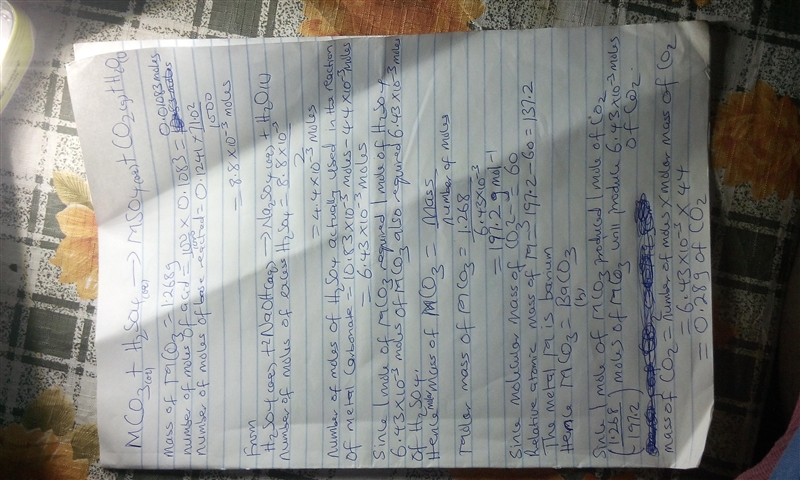 MCO3(aq) + H2SO4(aq) → MSO4(aq) + CO2(g) + H2O(l)
Mass of MCO3 = 1.268g
number of moles of acid = 100/1000 × 0.1083 = 0.01083 moles
number of moles of base reacted = 0.1241 × 71.02/1000
= 8.8 × 10-3 moles
From
H2SO4(aq) + 2NaOH(aq) → Na2SO4(aq) + H2O(l)
number of moles of excess H2SO4 = 8.8 × 10-3/2
= 4.4 × 10-3 moles
number of moles of H2SO4 actually used in the reaction
of metal carbonate = 10.83 × 10-3 moles - 4.4 × 10-3 moles
= 6.43 × 10-3 moles
Since 1 mole of MCO3 required 1 mole of H2SO4
6.43 × 10-3 moles of MCO3 also required 6.43 × 10-3 moles
of H2SO4.
Hence molar mass of MCO3 = Mass/number of moles
Molar mass of MCO3 = 1.268/6.43 × 10-3
= 197.2 g mol-1
Since molecular mass of CO3 2- = 60
Relative atomic mass of M = 197.2 - 60 = 137.2
The metal M is barium
Hence MCO3 = BaCO3
(b)
Since 1 mole of MCO3 produced 1 mole of CO2
(1.268/197.2) moles of MCO3 will produce 6.43 × 10-3 moles
of CO2.
mass of CO2 = number of moles × molar mass of CO2
= 6.43 × 10-3 × 44
= 0.28g of CO2